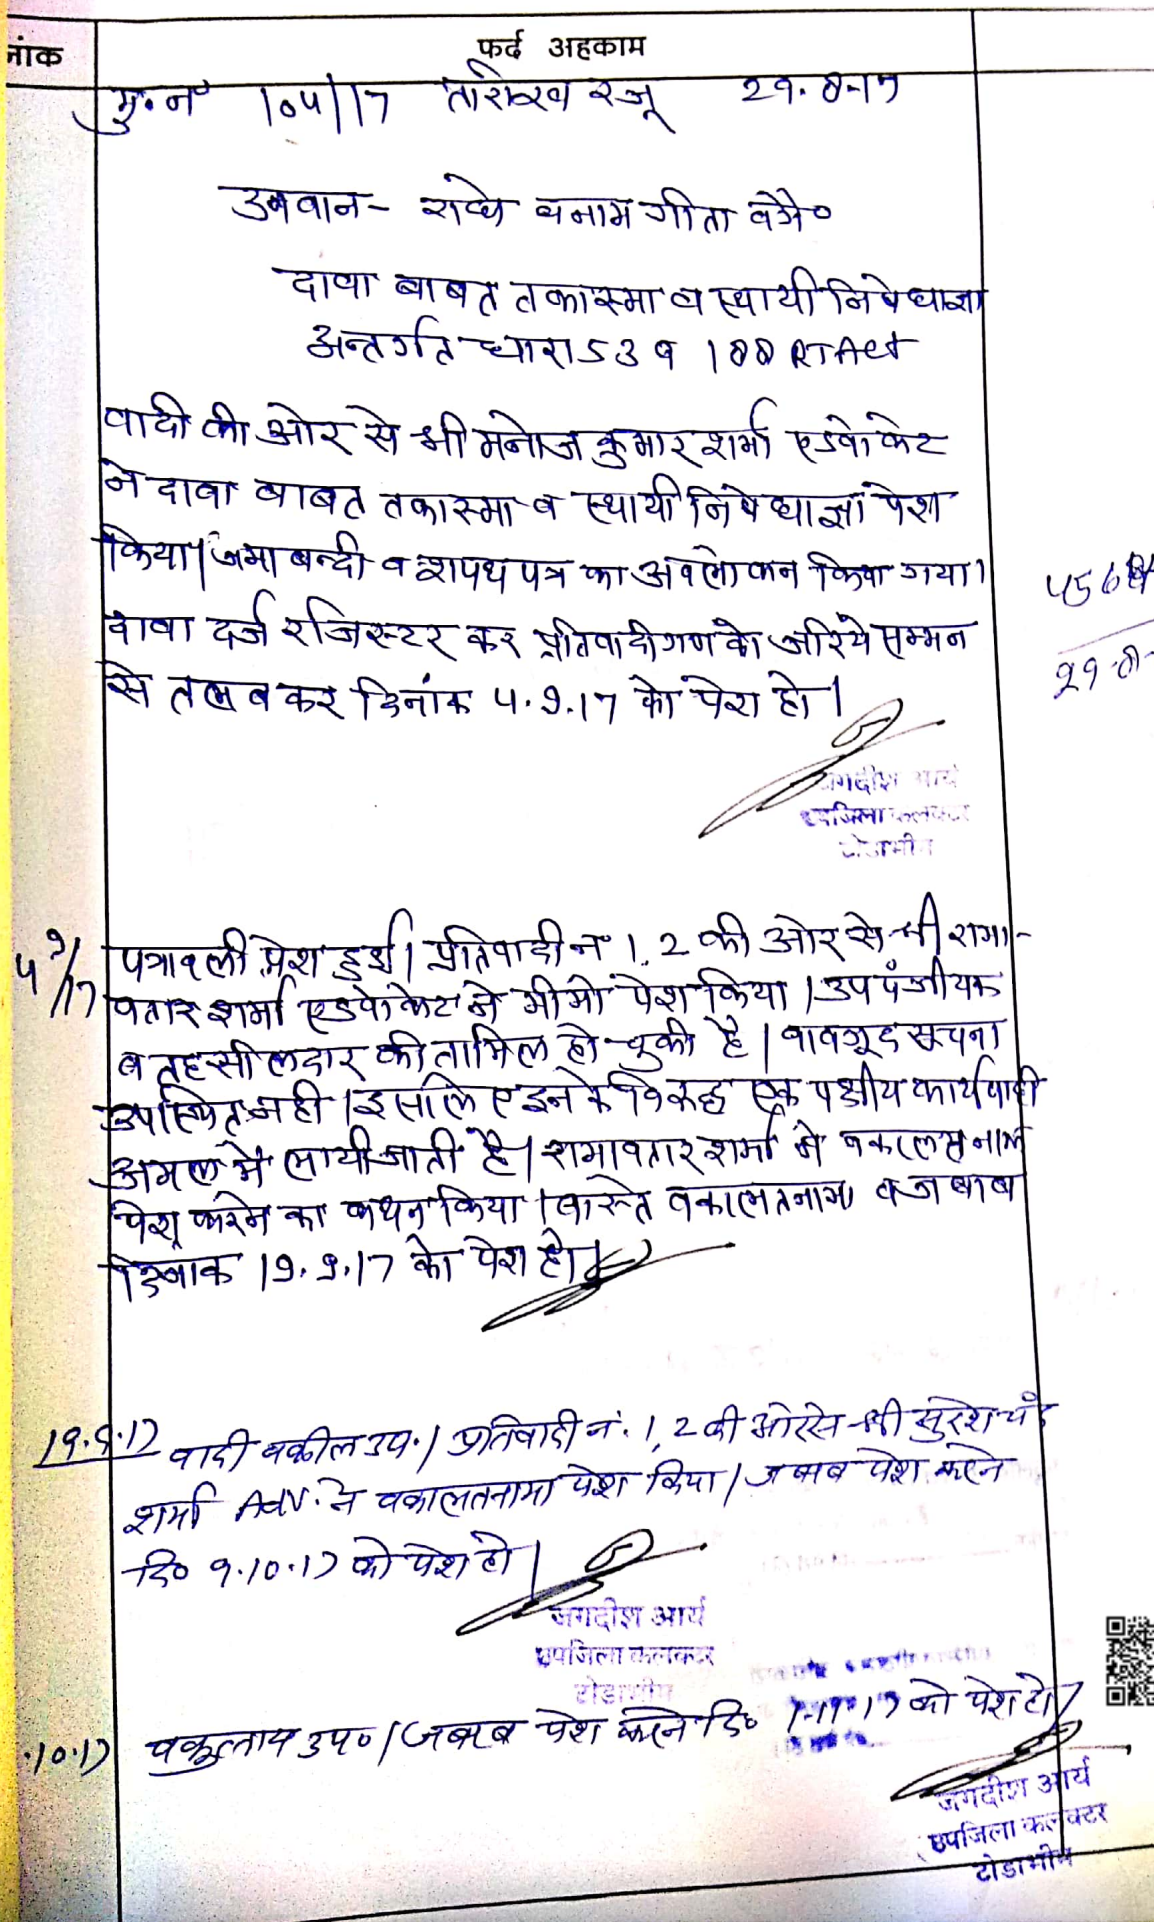 नांक
फर्द अहकाम
मु.न० 104/17 तारीख रजू 29.8.17
उनवान- राधे बनाम गीता वगै०
दावा बाबत तकास्मा व स्थायी निषेधाज्ञा
अन्तर्गत धारा 53 व 188 RTAct
वादी की ओर से श्री मनोज कुमार शर्मा एडवोकेट
ने दावा बाबत तकास्मा व स्थायी निषेधाज्ञा पेश
किया। जमाबन्दी व शपथ पत्र का अवलोकन किया गया।
दावा दर्ज रजिस्टर कर प्रतिवादीगण को जरिये सम्मन
से तलब कर दिनांक 4.9.17 को पेश हो।
जगदीश आर्य
उपजिला कलक्टर
टोडाभीम
4/9/17 पत्रावली पेश हुई। प्रतिवादी न० 1,2 की ओर से श्री रामा-
वतार शर्मा एडवोकेट ने मीमो पेश किया। उप पंजीयक
व तहसीलदार की तामिल हो चुकी है। बावजूद सूचना
उपस्थित नही। इसलिए इनके विरूद्ध एक पक्षीय कार्यवाही
अमल मे लायी जाती है। रामावतार शर्मा ने वकालतनामा
पेश करने का कथन किया। वास्ते वकालतनामा व जबाब
दिनांक 19.9.17 को पेश हो।
19.9.17 वादी वकील उप.। प्रतिवादी नं. 1,2 की ओर से श्री सुरेश चंद
शर्मा Adv. ने वकालतनामा पेश किया। जबाब पेश करने
दि० 9.10.17 को पेश हो।
जगदीश आर्य
उपजिला कलक्टर
टोडाभीम
.10.17 वकुलाय उप०। जबाब पेश करने दि० 7-11-17 को पेश हो।
जगदीश आर्य
उपजिला कलक्टर
टोडाभीम